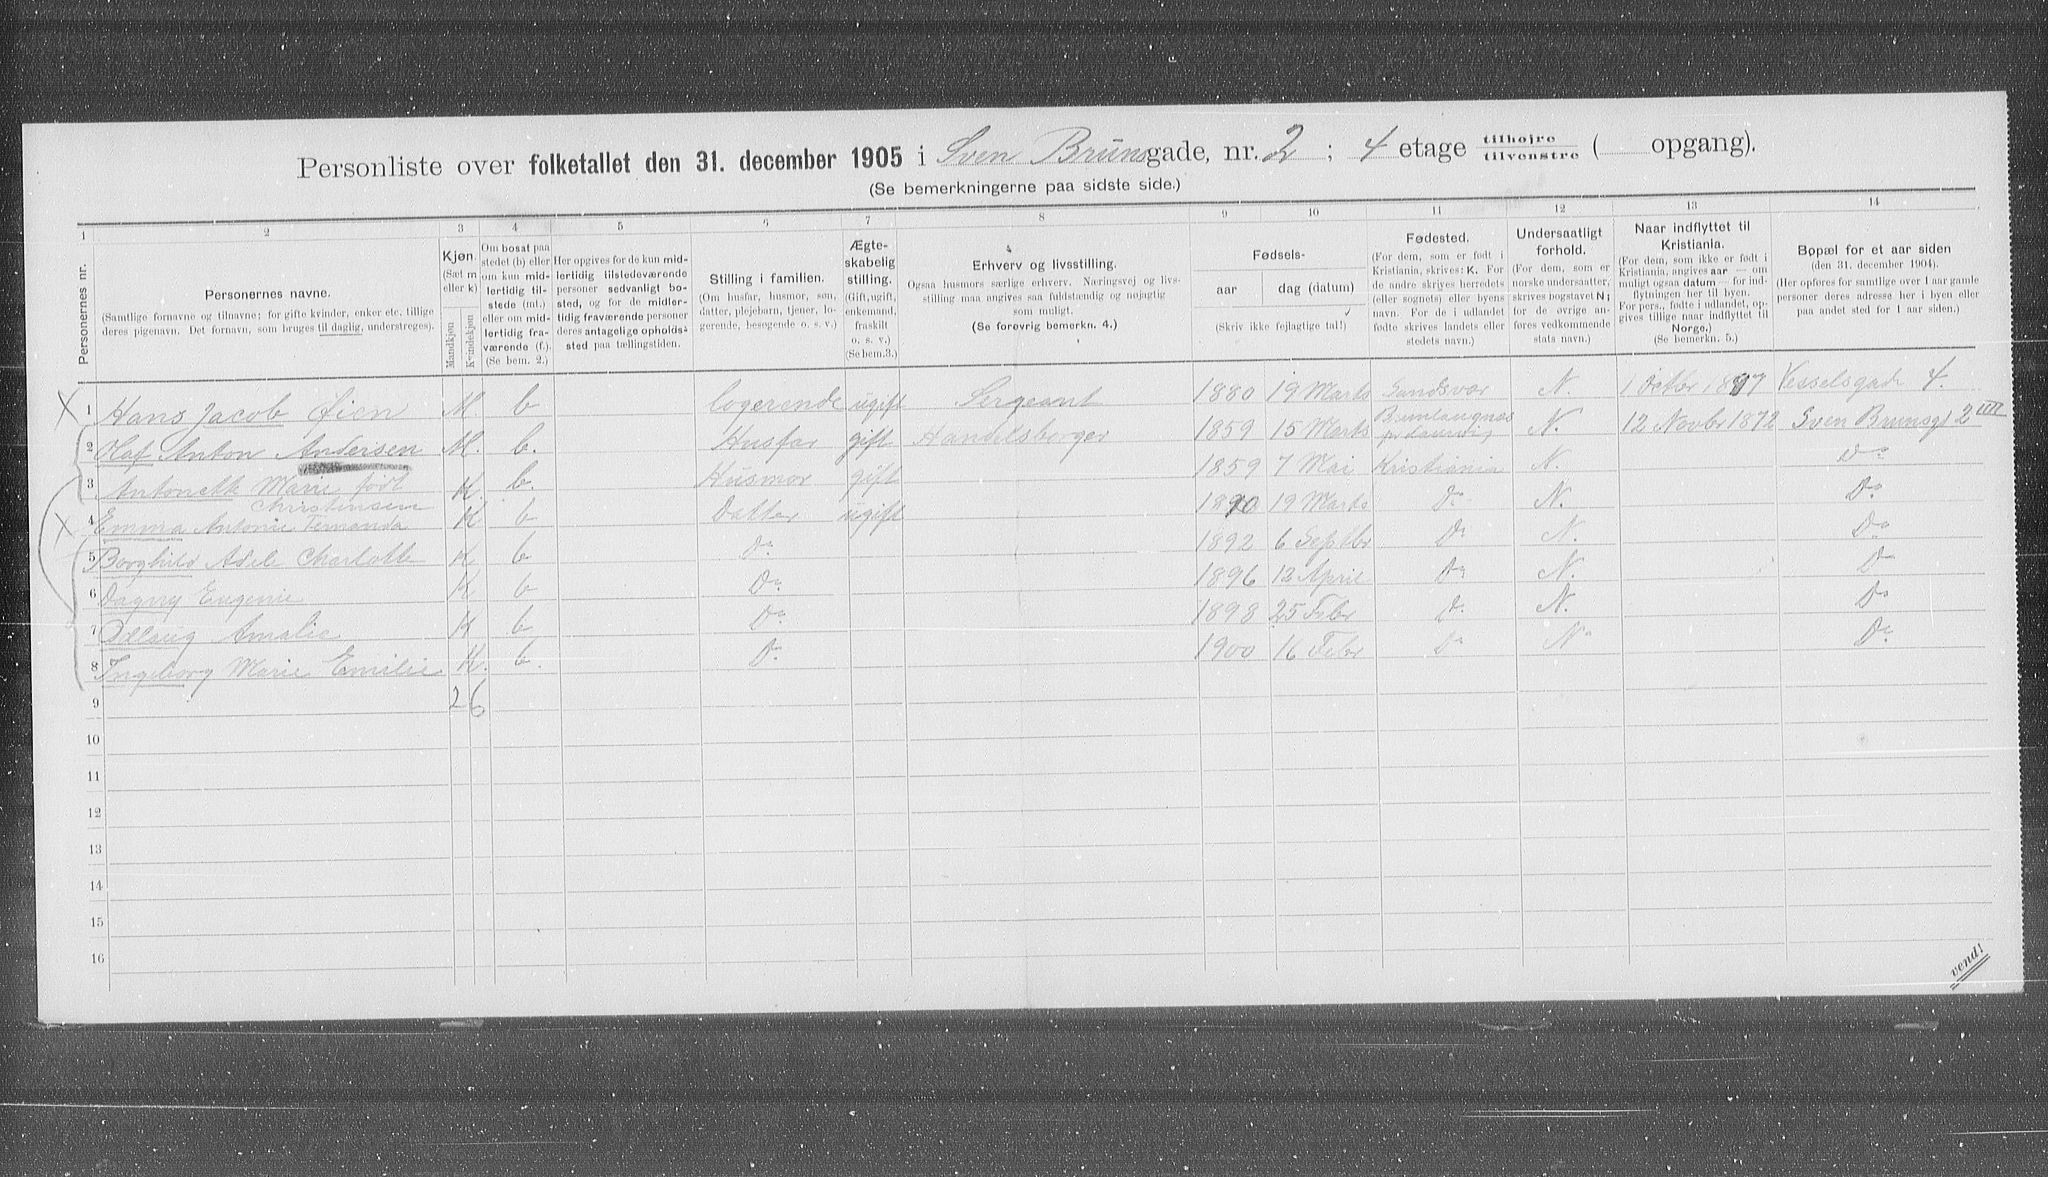 Personliste over folketallet den 31. december 1905 i Sven Brunsgade, nr. 2 ; 4 etage tilhøjre / tilvenstre ( opgang).
(Se bemerkningerne paa sidste side.)
1 2 3 4 5 6 7 8 9 10 11 12 13 14
Personernes nr.
Personernes navne.
(Samtlige fornavne og tilnavne; for gifte kvinder, enker etc. tillige
deres pigenavn. Det fornavn, som bruges til daglig, understreges).
Kjøn.
(Sæt m
eller k)
Mandkjøn
Kvindekjøn
Om bosat paa
stedet (b) eller
om kun mid-
lertidig til-
stede (mt.)
eller om mid-
lertidig fra-
værende (f.).
(Se bem. 2.)
Her opgives for de kun mid-
lertidig tilstedeværende
personer sedvanligt bo-
sted, og for de midler-
tidig fraværende personer
deres antagelige opholds-
sted paa tællingstiden.
Stilling i familien.
(Om husfar, husmor, søn,
datter, plejebarn, tjener, lo-
gerende, besøgende o. s. v.)
Ægte-
skabelig
stilling.
(Gift, ugift,
enkemand,
fraskilt
o. s. v.)
(Se bem.3.)
Erhverv og livsstilling.
Ogsaa husmors særlige erhverv. Næringsvej og livs-
stilling maa angives saa fuldstændig og nøjagtig
som muligt.
(Se forøvrig bemerkn. 4.)
Fødsels-
aar dag (datum)
(Skriv ikke fejlagtige tal!)
Fødested.
(For dem, som er født i
Kristiania, skrives: K. For
de andre skrives herredets
(eller sognets) eller byens
navn. For de i udlandet
fødte skrives landets eller
stedets navn.)
Undersaatligt
forhold.
(For dem, som er
norske undersaatter,
skrives bogstavet N;
for de øvrige an-
føres vedkommende
stats navn.)
Naar indflyttet til
Kristiania.
(For dem, som ikke er født i
Kristiania, angives aar — om
muligt ogsaa datum — for ind-
flytningen her til byen.
For pers., fødte i udlandet, op-
gives tillige naar indflyttet til
Norge.)
(Se bemerkn. 5.)
Bopæl for et aar siden
(den 31. december 1904).
(Her opføres for samtlige over 1 aar gamle
personer deres adresse her i byen eller
paa andet sted for 1 aar siden.)
X 1 Hans Jacob Øien M. b logerende ugift Sergeant 1880 19 Marts Sandsvær N. 1 Octbr 1897 Vesselsgade 4.
2 Olaf Anton Andersen M. b. Husfar gift Handelsborger 1859 15 Marts Brunlaugnæs N. 12 Novbr 1872 Sven Brunsgd 2 IIII
3 Antonette Marie født Christensen K b. Husmor gift 1859 7 Mai Kristiania N. Do
X 4 Emma Antonie Fernanda K b Datter ugift 1890 19 Marts Do N. Do
5 Borghild Adele Charlotte K b Do 1892 6 Septbr Do N. Do
6 Dagny Eugenie K b Do 1896 13 April Do N. Do
7 Ollaug Amalie K b Do 1898 25 Febr Do N. Do
8 Ingeborg Marie Emilie K. b. Do 1900 16 Febr Do N Do
9 2 6
10
11
12
13
14
15
16
vend!